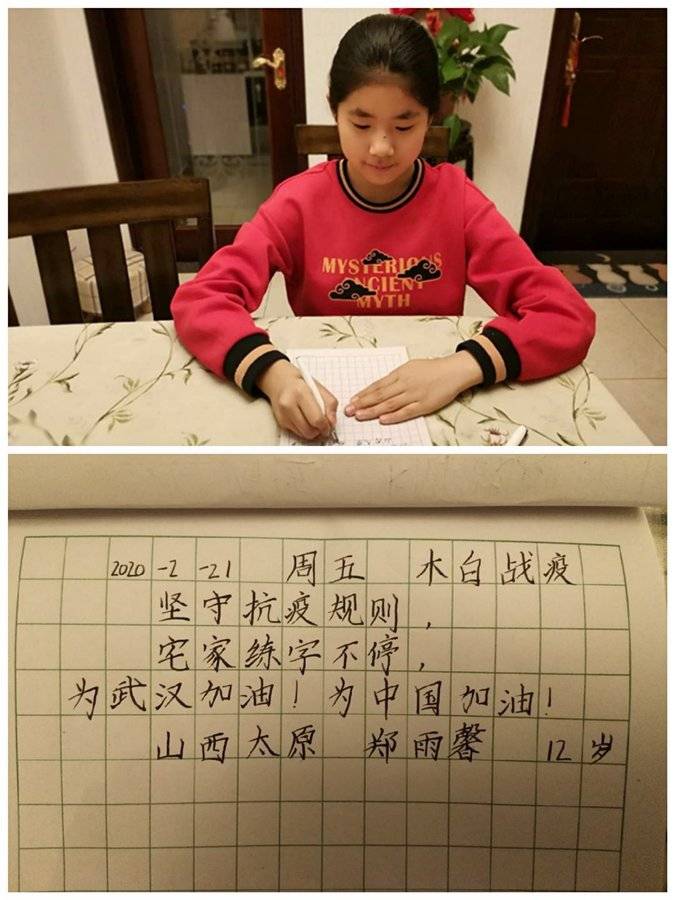 MYSTERIOUS
ANCIENT
MYTH
2020-2-21 周五 木白战疫
坚守抗疫规则，
宅家练字不停，
为武汉加油！为中国加油！
山西太原 郑雨馨 12岁